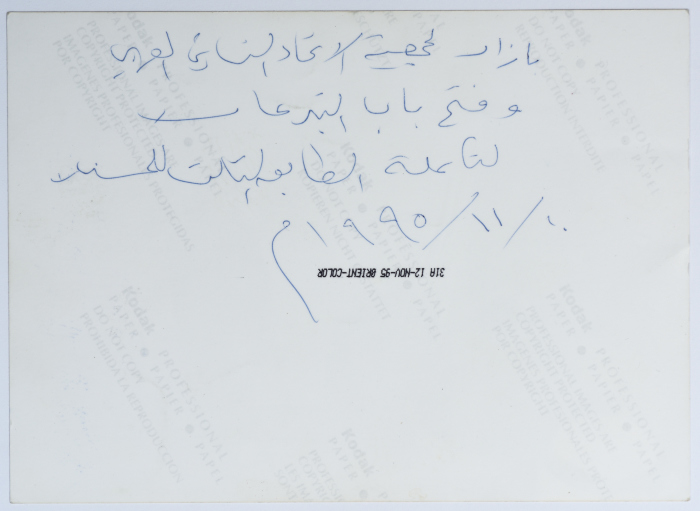 بازار لجمعية الاتحاد النسائي العربي
و فتح باب التبرعات
الطابق الثالث للمستشفى
١٠/١١/١٩٩٥م
31A 12-NOV-95 ORIENT-COLOR
Kodak
PROFESSIONAL
PAPER ● PAPIER